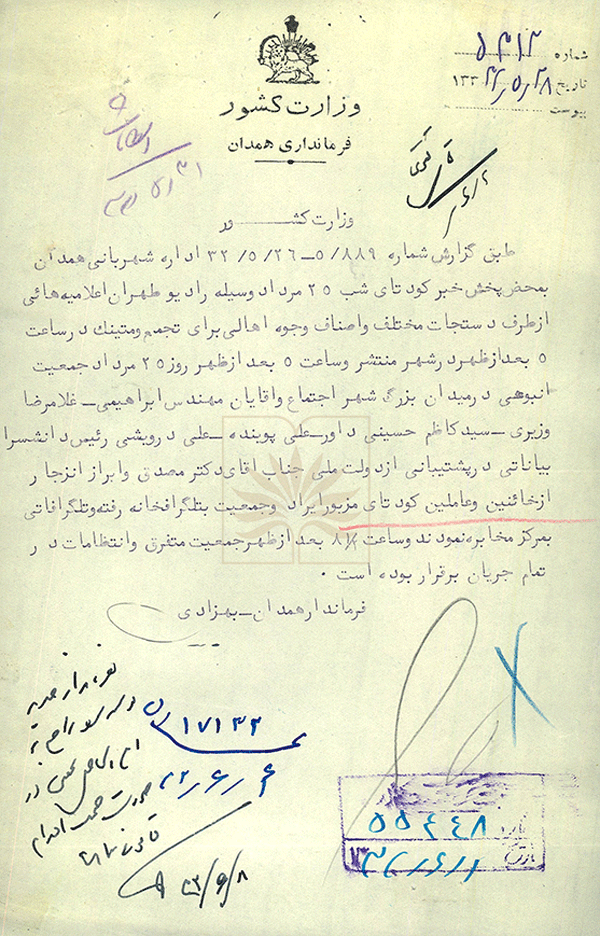 وزارت کشور
فرمانداری همدان
شماره ۵۳۱۲
تاریخ ۲۸/۵/۱۳۳۲
پیوست
وزارت کشــــــور
طبق گزارش شماره ۵/۸۸۹ـ ۳۲/۵/۲۶ اداره شهربانی همدان
بمحض پخش خبر کودتای شب ۲۵ مرداد وسیله رادیو طهران اعلامیه هائی
از طرف دستجات مختلف واصناف وجوه اهالی برای تجمع ومتینک در ساعت
۵ بعدازظهر در شهر منتشر وساعت ۵ بعد از ظهر روز ۲۵ مرداد جمعیت
انبوهی در میدان بزرگ شهر اجتماع واقایان مهندس ابراهیمی ـ غلامرضا
وزیری ـ سید کاظم حسینی داور ـ علی پوینده ـ علی درویشی رئیس دانشسرا
بیاناتی در پشتیبانی از دولت ملی جناب اقای دکتر مصدق وابراز انزجار
از خائنین وعاملین کودتای مزبور ایراد وجمعیت بتلگرافخانه رفته وتلگرافاتی
بمرکز مخابره نمودند وساعت ۸ بعد از ظهر جمعیت متفرق وانتظامات در
تمام جریان برقرار بوده است ۰
فرماندار همدان ـ بهزادی
۱۷۱۳۲
۳۲/۶/۴
۳۲/۶/۸
۵۵۴۴۸
۳۲/۶/۱